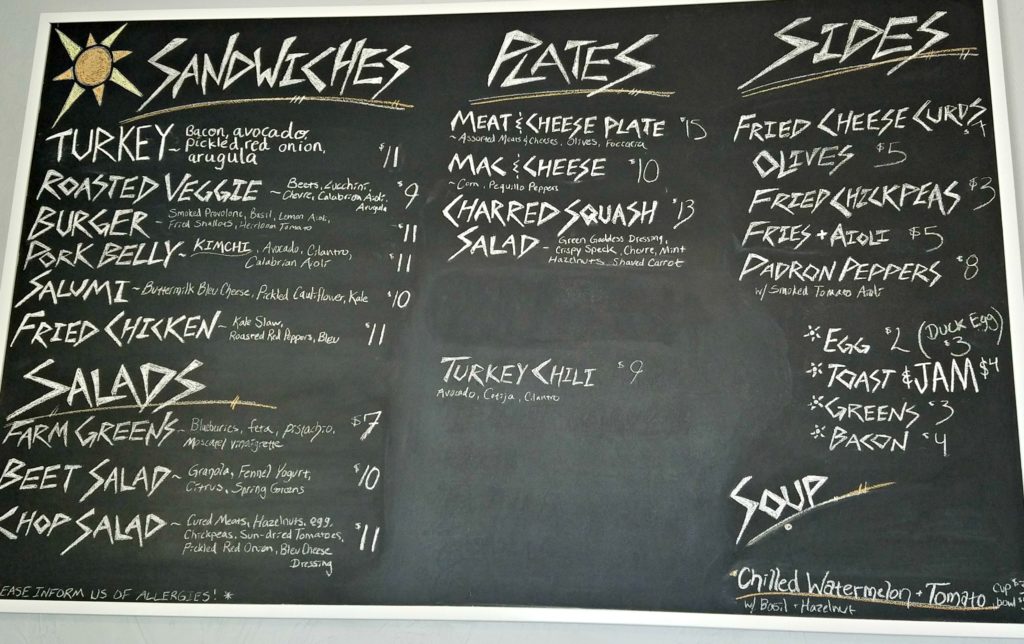 SANDWICHES
TURKEY ~ Bacon, avocado,
pickled red onion,
arugula $11
ROASTED VEGGIE ~ Beets, Zucchini, $9
Chevre, Calabrian Aioli,
Arugula
BURGER ~ Smoked Provolone, Basil, Lemon Aioli, $11
Fried Shallots, Heirloom Tomato
PORK BELLY ~ KIMCHI, Avocado, Cilantro, $11
Calabrian Aioli
SALUMI ~ Buttermilk Bleu Cheese, Pickled Cauliflower, Kale $10
FRIED CHICKEN ~ Kale Slaw, $11
Roasted Red Peppers, Bleu
SALADS
FARM GREENS ~ Blueburies, feta, pistachio, $7
Moscatel vinaigrette
BEET SALAD ~ Granola, Fennel Yogurt, $10
Citrus, Spring Greens
CHOP SALAD ~ Cured Meats, Hazelnuts, egg, $11
Chickpeas, Sun-dried Tomatoes,
Pickled Red Onion, Bleu Cheese
Dressing
EASE INFORM US OF ALLERGIES! *
PLATES
MEAT & CHEESE PLATE $15
~ Assorted Meats & Cheeses, Olives, Foccacia
MAC & CHEESE $10
~ Corn, Pequillo Peppers
CHARRED SQUASH $13
SALAD ~ Green Goddess Dressing,
Crispy Speck, Chevre, Mint
Hazelnuts, Shaved Carrot
TURKEY CHILI $9
Avocado, Cotija, Cilantro
SIDES
FRIED CHEESE CURDS
OLIVES $5
FRIED CHICKPEAS $3
FRIES + AIOLI $5
PADRON PEPPERS $8
w/ Smoked Tomato Aioli
* EGG $2 (DUCK Egg)
$3
* TOAST & JAM $4
* GREENS $3
* BACON $4
SOUP
Chilled Watermelon + Tomato cup
w/ Basil + Hazelnut bowl